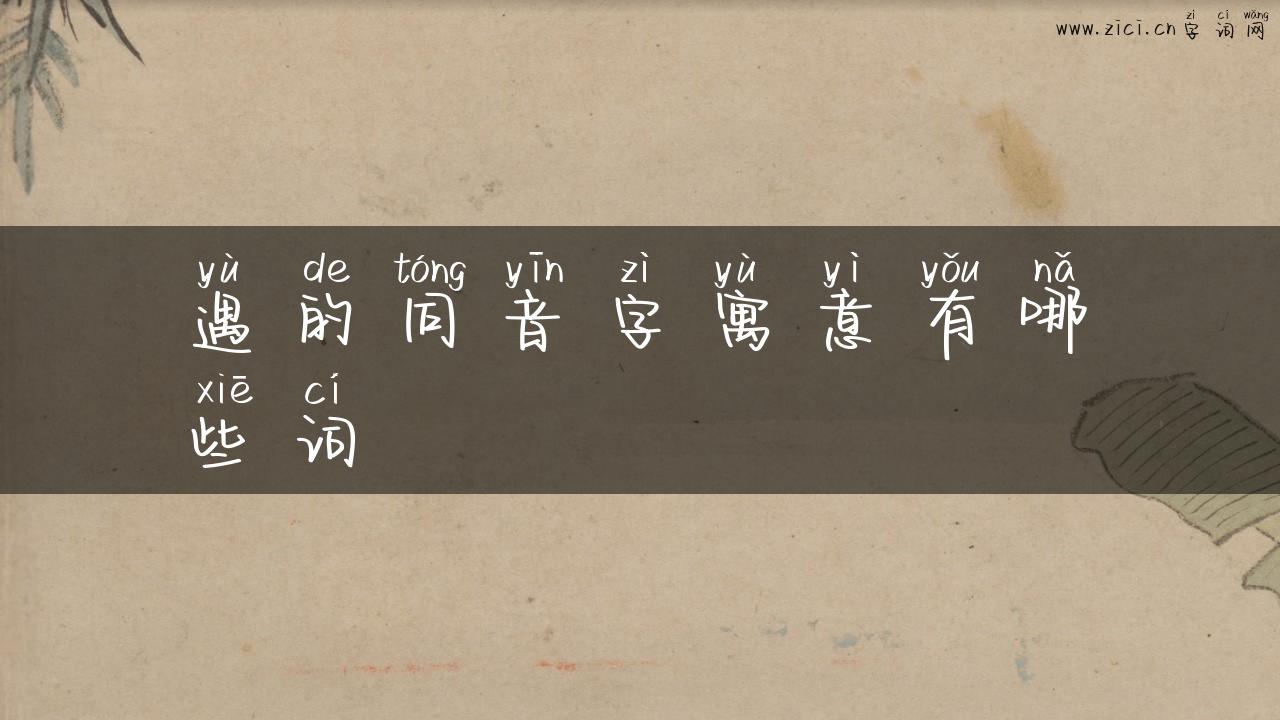 zì cí wǎng
www.zici.cn 字词网
yù de tóng yīn zì yù yì yǒu nǎ
遇的同音字寓意有哪
xiē cí
些词